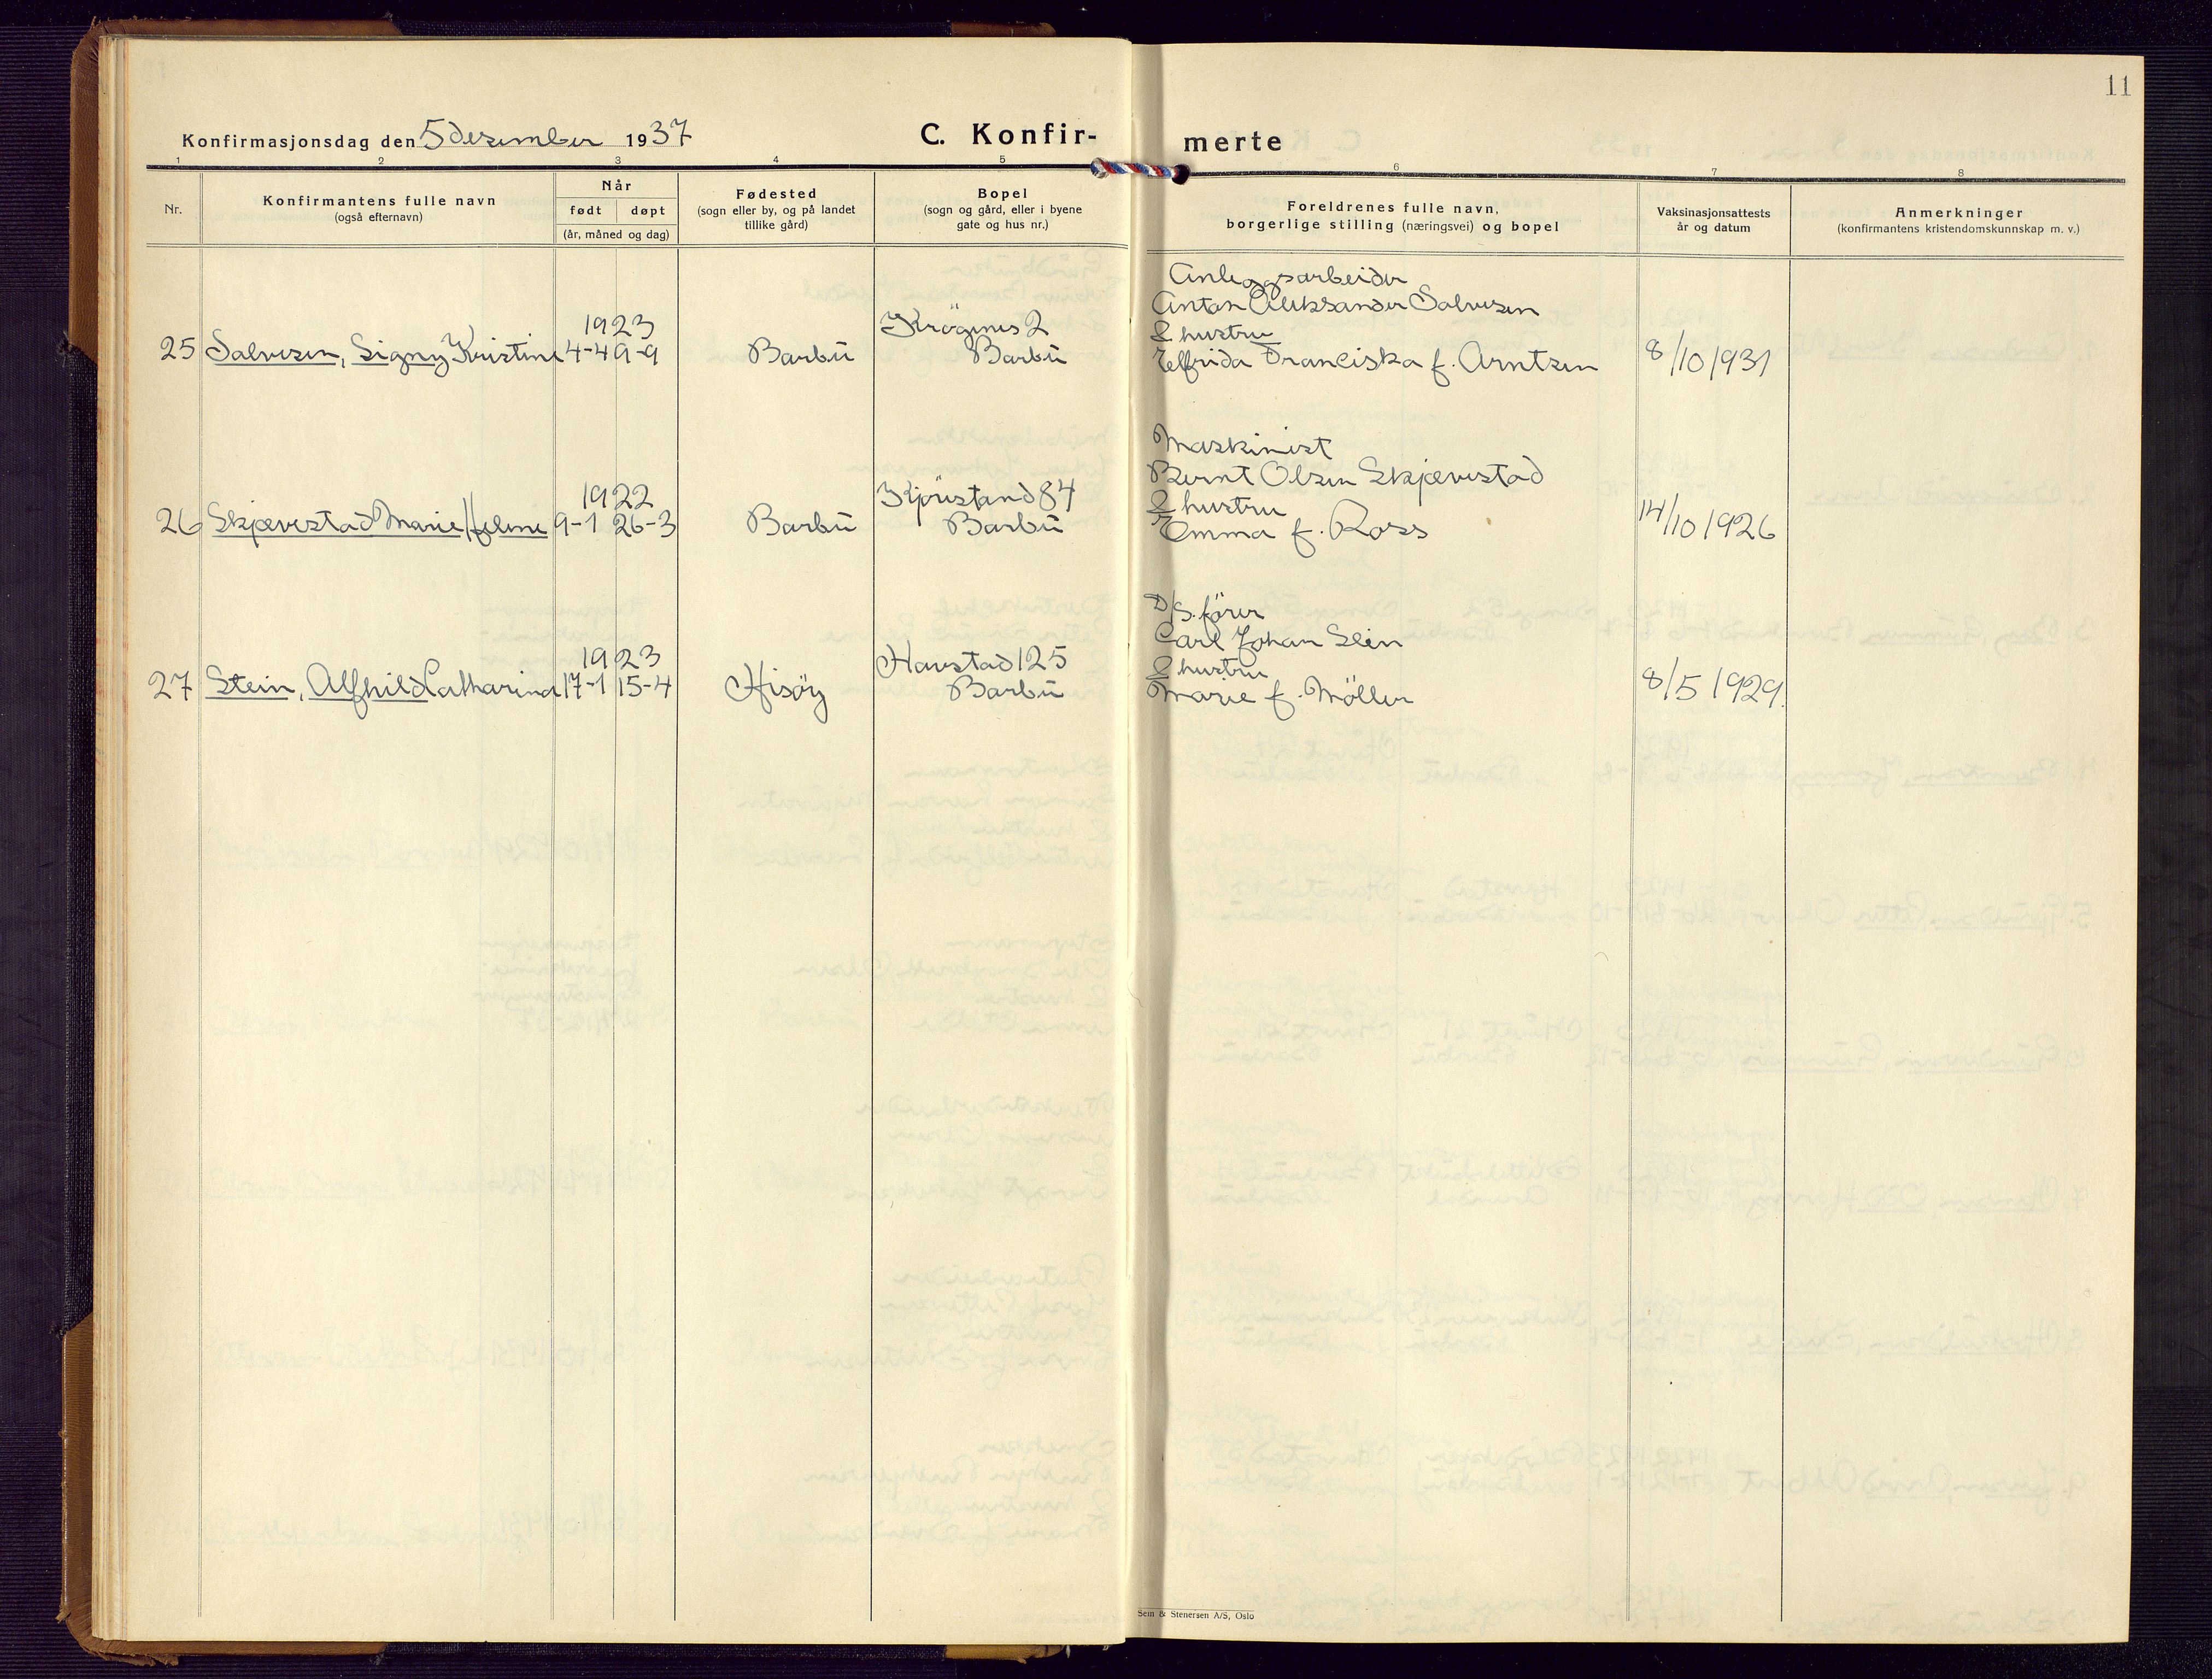 11
Konfirmasjonsdag den 5 desember 1937
C. Konfir-
merte
1 2 3 4 5 6 7 8
Nr.
Konfirmantens fulle navn
(også efternavn)
Når
født døpt
(år, måned og dag)
Fødested
(sogn eller by, og på landet
tillike gård)
Bopel
(sogn og gård, eller i byene
gate og hus nr.)
Foreldrenes fulle navn,
borgerlige stilling (næringsvei) og bopel
Vaksinasjonsattests
år og datum
Anmerkninger
(konfirmantens kristendomskunnskap m. v.)
Anleggsarbeider
Anton Aleksander Salvesen
1923 Krögenes 2 & hustru
25 Salvesen, Signy Kristine 4-4 9-9 Barbu Barbu Elfrida Franciska f. Arntsen 8/10 1931
Maskinist
Bernt Olsen Skjævestad
1922 Kjörstand 84 & hustru
26 Skjævestad Marie Helene 9-1 26-3 Barbu Barbu Emma f. Ross 14/10 1926
D/S. förer
Carl Johan Stein
1923 Havstad 125 & hustru
27 Stein, Alfhild Catharina 17-1 15-4 Hisöy Barbu Marie f. Möller 8/5 1929.
Sem & Stenersen A/S, Oslo